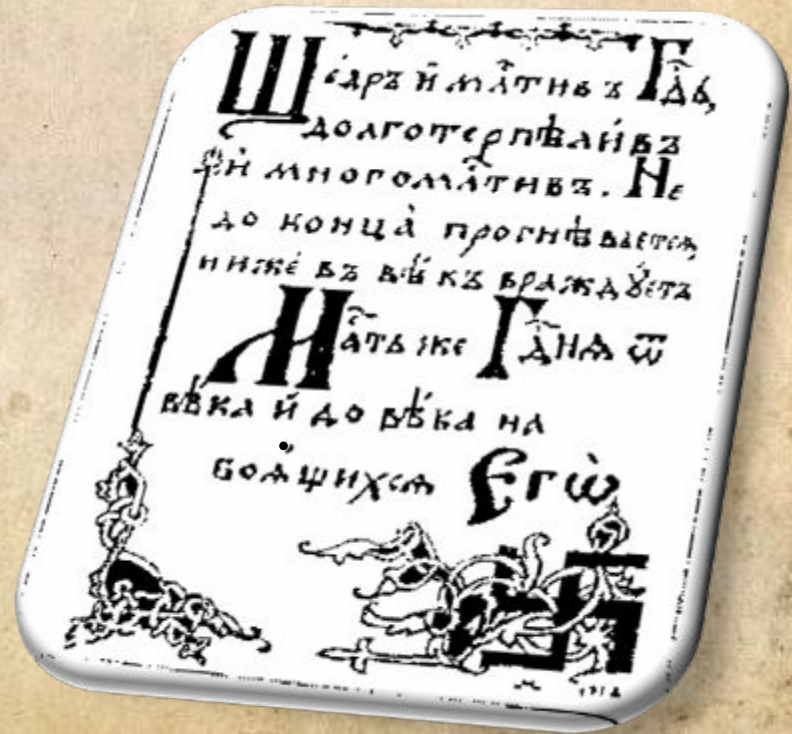 Ще́дръ и҆ мл҃тивъ Гд҃ь,
долготерпѣли́въ
и҆ многомл҃тивъ. Не
до конца̀ прогнѣвается,
ниже́ въ вѣ́къ враждꙋ́етъ
Мл҃ть же Гд҃нѧ ѿ
вѣ́ка и҆ до вѣ́ка на
боѧ́щихсѧ Єгѡ̀